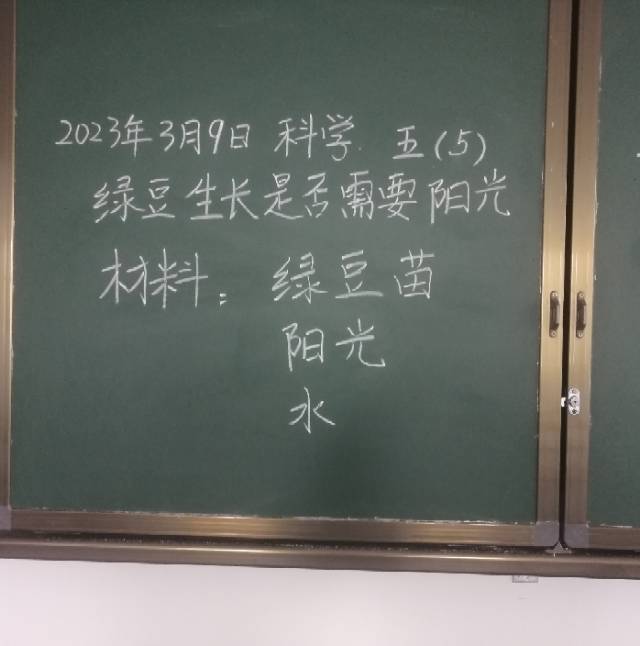 2023年3月9日 科学 五(5)
绿豆生长是否需要阳光
材料：绿豆苗
阳光
水